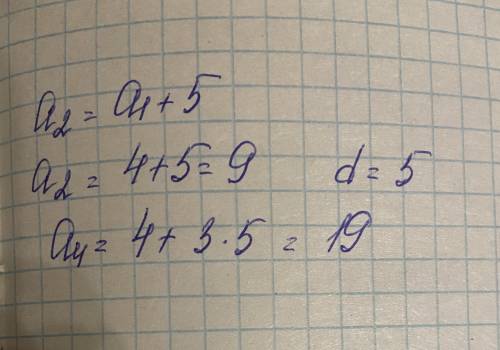 a₂ = a₁ + 5
a₂ = 4 + 5 = 9 d = 5
a₄ = 4 + 3 · 5 = 19